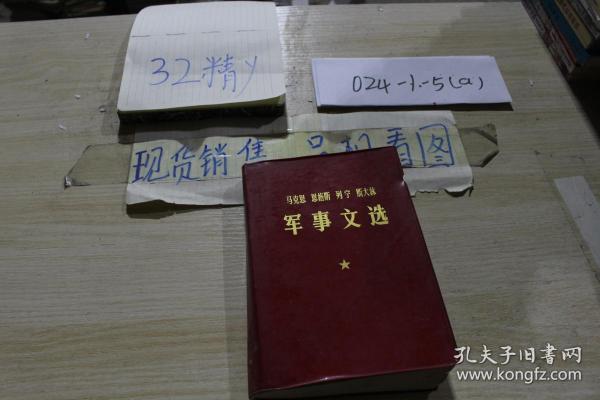 32精y
024-1-5(a)
现货销售 品相看图
马克思 恩格斯 列宁 斯大林
军事文选
孔夫子旧书网
www.kongfz.com